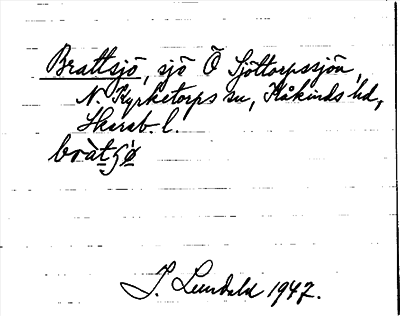 Brattsjö, sjö Ö Sjöttorpssjön,
N. Kyrketorps sn, Kåkinds hd,
Skarab. l.
bràtʃø̀
J. Lundahl 1947.